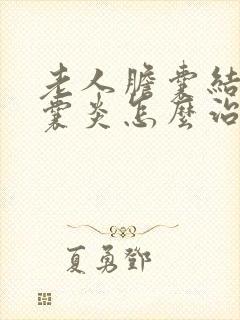 老人膽囊結
囊炎怎麼治
夏勇鄧